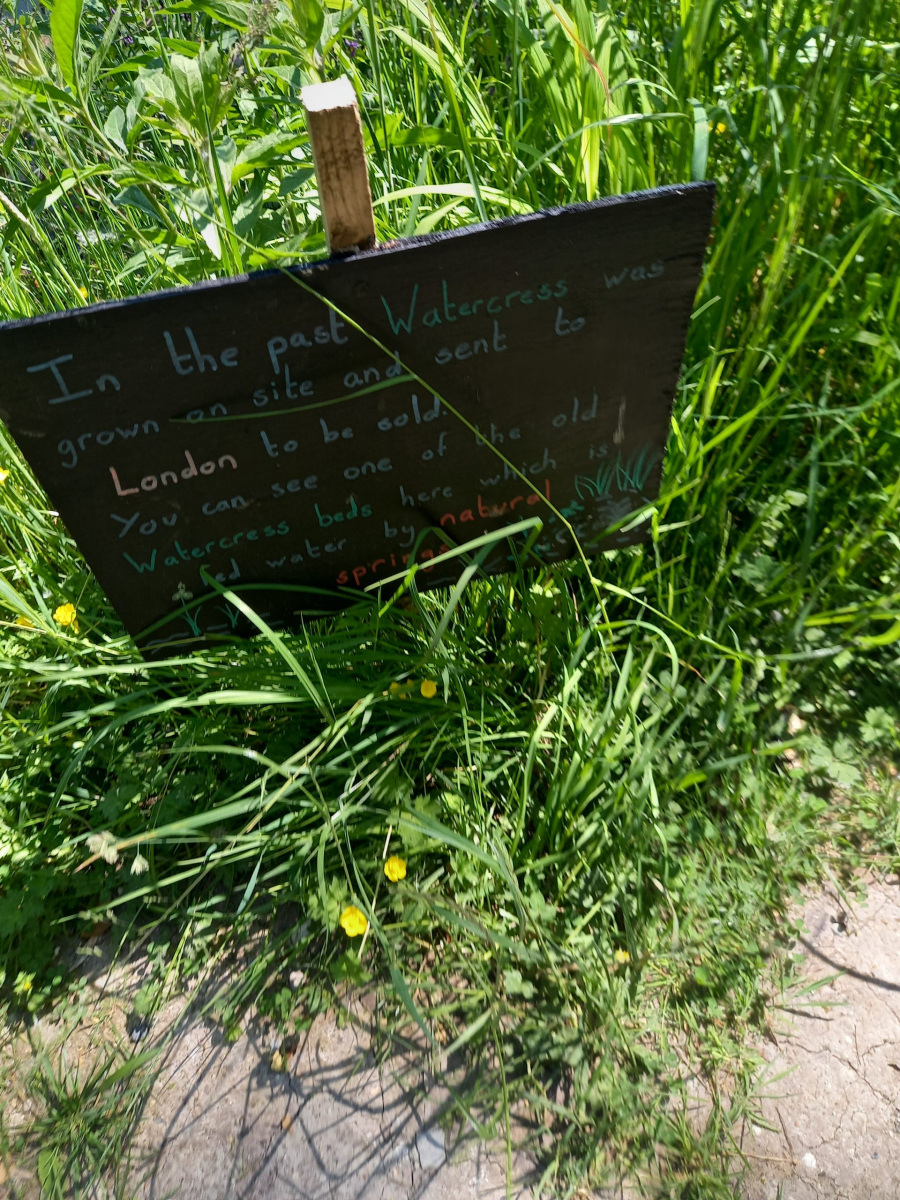 In the past Watercress was
grown on site and sent to
London to be sold.
You can see one of the old
Watercress beds here which is
water by natural
springs